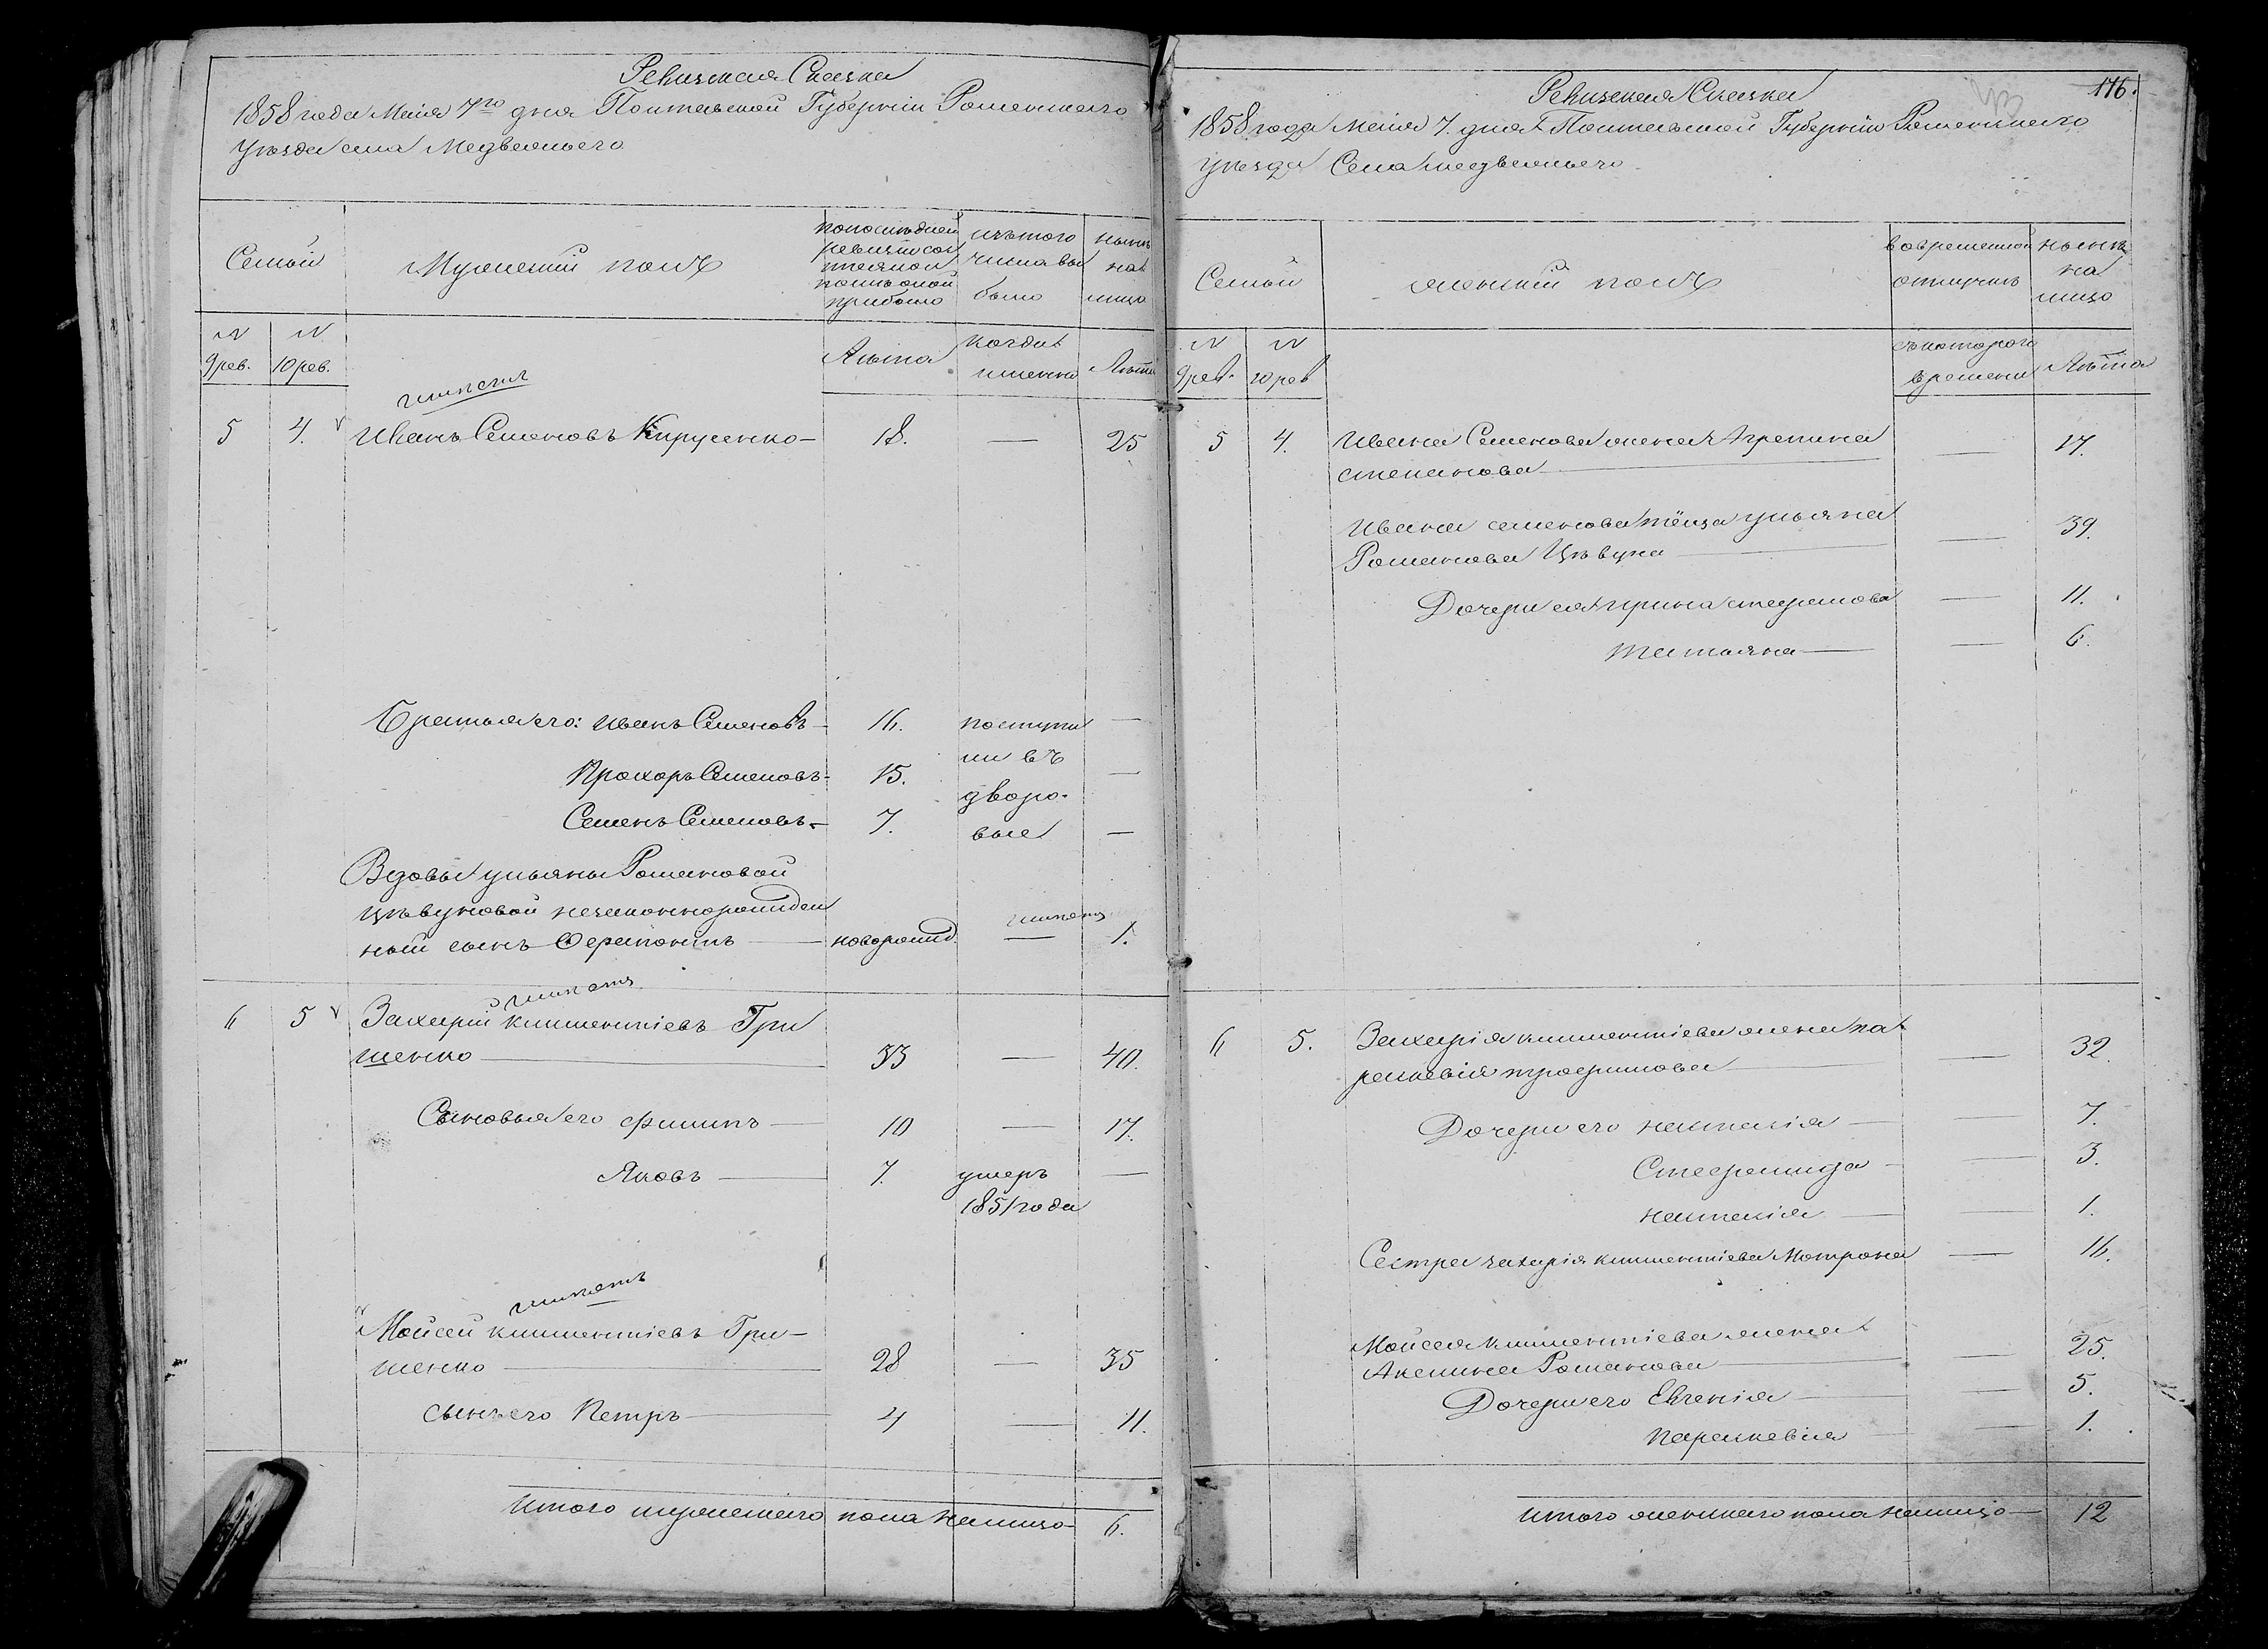 Ревизская Сказка
1858 года Маія 7го дня Полтавской Губерніи Роменскаго
Уѣзда села Медвежьего
Семьи
Мужескій полъ
по последней
ревизіи сос
тояло и
после оной
прибыло
изъ того
числа вы
было
нынѣ
на
лицо
№
9 рев.
№
10 рев.
Лѣта
когда
именно
Лѣта
5 4. Иванъ Семеновъ Кирусенко — 18. — 25
Братья его: Иванъ Семеновъ — 16. поступи —
ли въ
Прохоръ Семеновъ — 15. —
дворо-
Семенъ Семеновъ — 7. вые —
Вдовы Ульяны Романовой
Цѣвуновой незаконнорожден
ный сынъ Ферапонтъ — новорожд. — 1.
6 5 Захарій Климентіевъ Гри
шенко — 33 — 40.
Сыновья его Филипъ — 10 — 17.
Яковъ — 7. умеръ —
1851 года
Мойсей Климентіевъ Гри-
шенко — 28 — 35
сынъ его Петръ — 4 — 11.
Итого мужескаго пола налицо — 6.
Ревизская Сказка
116.
1858 года Маія 7. дня Полтавской Губерніи Роменскаго
уѣзда Села медвежьего
Семьи
женскій полъ
во временной
отлучкѣ
нынѣ
на
лицо
№
9 рев.
№
10 рев
съ которого
времени
Лѣта
5 4. Ивана Семенова жена Агрепина
степанова — — 17.
Ивана семенова тёща ульяна
Романова Цѣвуна — — 39.
Дочери ея Ирина стефанова — 11.
татьяна — — 6.
6 5. Захарія климентіева жена па
раскевія трофимова — — 32.
Дочери его наталія — — 7.
Стефанида — — 3.
наталія — — 1.
Сестра захарія климентіева Мотрона — 16.
Мойсея Климентіева жена
Акелина Романова — — 25.
Дочери его Евгенія — — 5.
параскевія — 1.
Итого женскаго пола налицо — 12